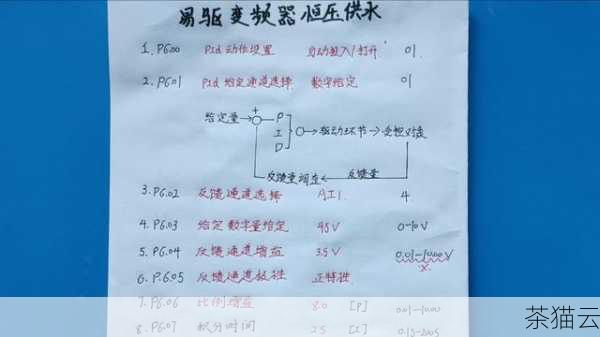 易驱变频器恒压供水
1. PG00 Pid动作设置 自动投入/打开 01
2. PG01 Pid给定通道选择 数字给定 01
给定量 + P
I 驱动环节 受控对象
D
反馈量调查 反馈量
3. PG.02 反馈通道选择 AI1. 4
4. PG.03 给定数字量给定 45V 0-10V
5. PG.04 反馈通道增益 3.5V 0.01-10.00V
x.
6. P.G.05 反馈通道极性 正特性
7. PG.06 比例增益 8.0 [P] 0.01-10.00
8. PG.07 积分时间 2.5 [I] 0.1S-200S
茶猫云